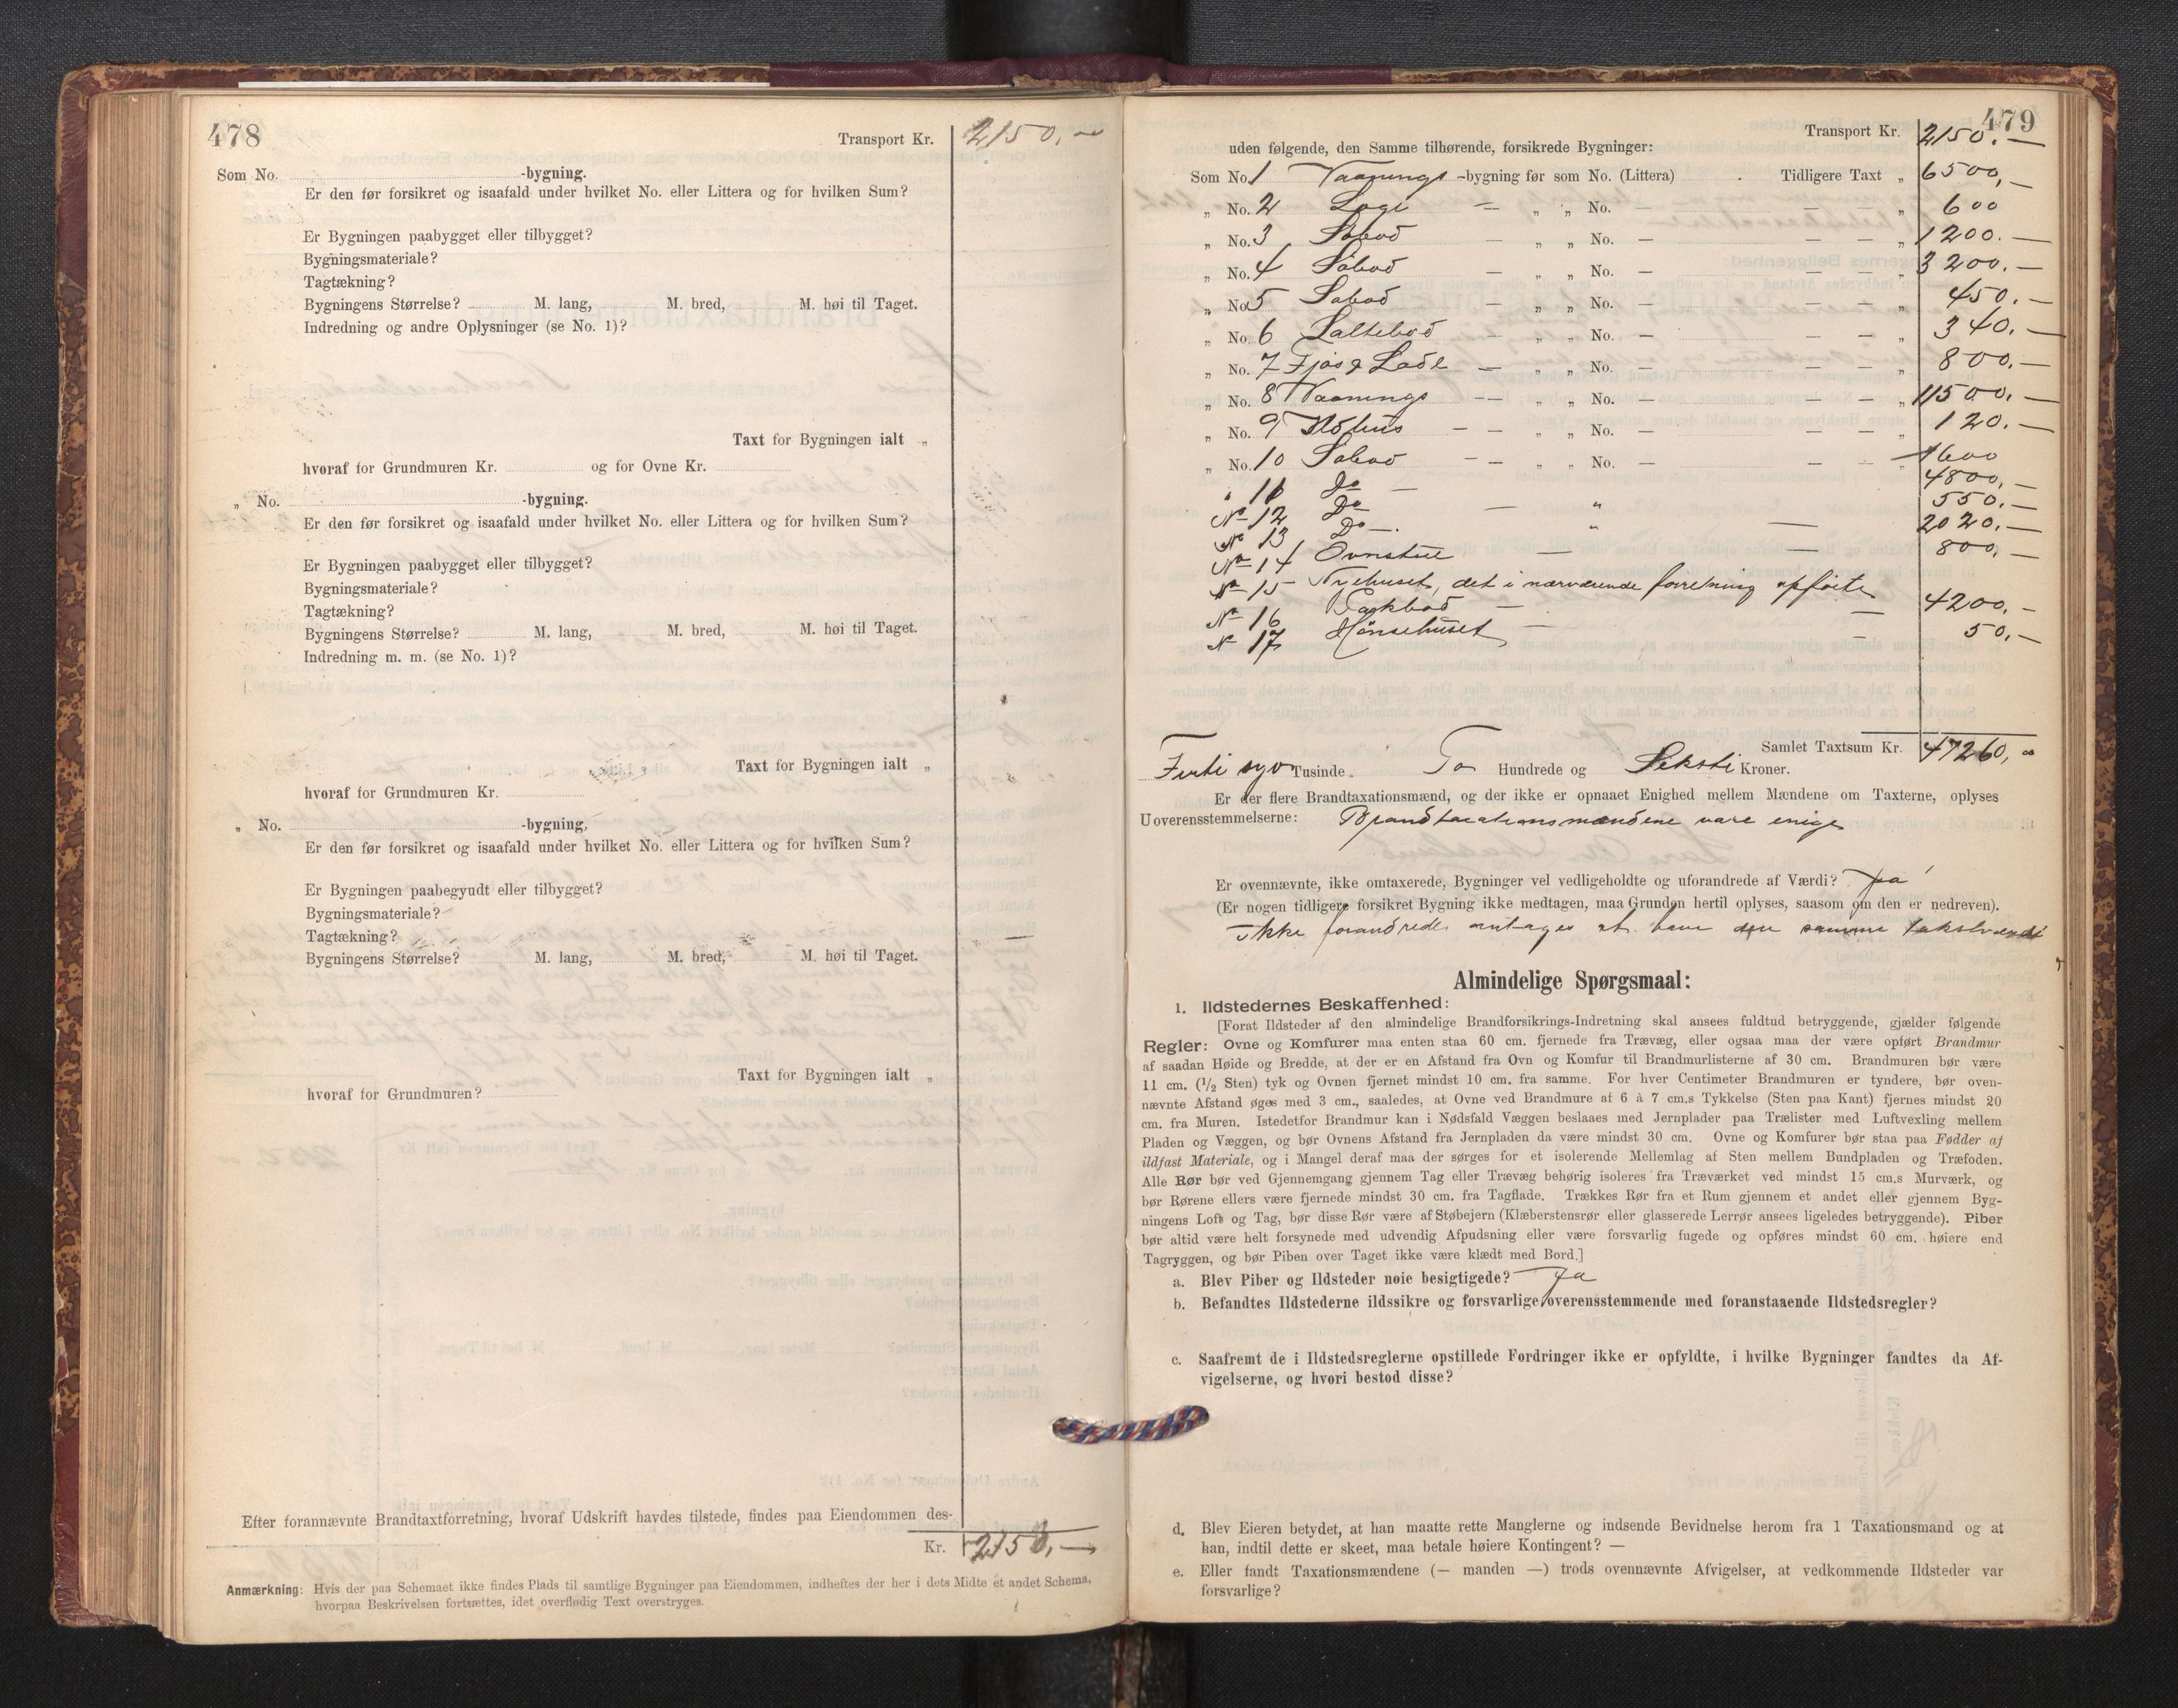 478
Transport Kr. 2150,00
Som No. -bygning.
Er den før forsikret og isaafald under hvilket No. eller Littera og for hvilken Sum?
Er Bygningen paabygget eller tilbygget?
Bygningsmateriale?
Tagtækning?
Bygningens Størrelse? M. lang, M. bred, M. høi til Taget.
Indredning og andre Oplysninger (se No. 1)?
Taxt for Bygningen ialt „
hvoraf for Grundmuren Kr. og for Ovne Kr.
„ No. -bygning.
Er den før forsikret og isaafald under hvilket No. eller Littera og for hvilken Sum?
Er Bygningen paabygget eller tilbygget?
Bygningsmateriale?
Tagtækning?
Bygningens Størrelse? M. lang, M. bred, M. høi til Taget.
Indredning m. m. (se No. 1)?
Taxt for Bygningen ialt „
hvoraf for Grundmuren Kr.
„ No. -bygning,
Er den før forsikret og isaafald under hvilket No. eller Littera og for hvilken Sum?
Er Bygningen paabegyndt eller tilbygget?
Bygningsmateriale?
Tagtækning?
Bygningens Størrelse? M. lang, M. bred, M. høi til Taget.
Taxt for Bygningen ialt „
hvoraf for Grundmuren?
Efter forannævnte Brandtaxtforretning, hvoraf Udskrift havdes tilstede, findes paa Eiendommen des-
Kr. 2150,—
Anmærkning: Hvis der paa Schemaet ikke findes Plads til samtlige Bygninger paa Eiendommen, indheftes der her i dets Midte et andet Schema,
hvorpaa Beskrivelsen fortsættes, idet overflødig Text overstryges.
479
Transport Kr. 2150.—
uden følgende, den Samme tilhørende, forsikrede Bygninger:
Som No. 1 Vaanings -bygning før som No. (Littera) . Tidligere Taxt „ 6500,—
„ No. 2 Loge — „ „ No. — — — „ 600
„ No. 3 Søbod — „ „ No. — — — „ 1200.—
„ No. 4 Søbod — „ „ No. — — — „ 3200.—
„ No. 5 Søbod — „ „ No. — — — „ 450.—
„ No. 6 Saltebod — „ „ No. — — — „ 340.—
„ No. 7 Fjøs & Lade — „ „ No. — — — „ 800.—
„ No. 8 Vaanings — — „ „ No. — — — „ 11500.—
„ No. 9 — — „ „ No. — — — „ 120.—
„ No. 10 Søbod — — „ „ No. — — — „ 1600
„ 11 Do — 4800,—
No 12 Do — „ 550.—
No 13 Do —. „ — 2020.—
No 14 Ovnstue — — 800,—
No 15 - Nyehuset, det i nærværende forretning opførte
No 16 Pakbod — — 4200,—
N 17 Hønsehuset — — 50,—
Samlet Taxtsum Kr. 47260,00
Firti syv Tusinde To Hundrede og Seksti Kroner.
Er der flere Brandtaxationsmænd, og der ikke er opnaaet Enighed mellem Mændene om Taxterne, oplyses
Uoverensstemmelserne: Brandtaxationsmændene vare enige
Er ovennævnte, ikke omtaxerede, Bygninger vel vedligeholdte og uforandrede af Værdi? Ja
(Er nogen tidligere forsikret Bygning ikke medtagen, maa Grunden hertil oplyses, saasom om den er nedreven).
ikke forandrede antages at have den samme takstværdi
Almindelige Spørgsmaal:
1. Ildstedernes Beskaffenhed:
[Forat Ildsteder af den almindelige Brandforsikrings-Indretning skal ansees fuldtud betryggende, gjælder følgende
Regler: Ovne og Komfurer maa enten staa 60 cm. fjernede fra Trævæg, eller ogsaa maa der være opført Brandmur
af saadan Høide og Bredde, at der er en Afstand fra Ovn og Komfur til Brandmurlisterne af 30 cm. Brandmuren bør være
11 cm. (1/2 Sten) tyk og Ovnen fjernet mindst 10 cm. fra samme. For hver Centimeter Brandmuren er tyndere, bør oven-
nævnte Afstand øges med 3 cm., saaledes, at Ovne ved Brandmure af 6 à 7 cm.s Tykkelse (Sten paa Kant) fjernes mindst 20
cm. fra Muren. Istedetfor Brandmur kan i Nødsfald Væggen beslaaes med Jernplader paa Trælister med Luftvexling mellem
Pladen og Væggen, og bør Ovnens Afstand fra Jernpladen da være mindst 30 cm. Ovne og Komfurer bør staa paa Fødder af
ildfast Materiale, og i Mangel deraf maa der sørges for et isolerende Mellemlag af Sten mellem Bundpladen og Træfoden.
Alle Rør bør ved Gjennemgang gjennem Tag eller Trævæg behørig isoleres fra Træværket ved mindst 15 cm.s Murværk, og
bør Rørene ellers være fjernede mindst 30 cm. fra Tagflade. Trækkes Rør fra et Rum gjennem et andet eller gjennem Byg-
ningens Loft og Tag, bør disse Rør være af Støbejern (Klæberstensrør eller glasserede Lerrør ansees ligeledes betryggende). Piber
bør altid være helt forsynede med udvendig Afpudsning eller være forsvarlig fugede og opføres mindst 60 cm. høiere end
Tagryggen, og bør Piben over Taget ikke være klædt med Bord.]
a. Blev Piber og Ildsteder nøie besigtigede? Ja
b. Befandtes Ildstederne ildssikre og forsvarlige overensstemmende med foranstaaende Ildstedsregler?
c. Saafremt de i Ildstedsreglerne opstillede Fordringer ikke er opfyldte, i hvilke Bygninger fandtes da Af-
vigelserne, og hvori bestod disse?
d. Blev Eieren betydet, at han maatte rette Manglerne og indsende Bevidnelse herom fra 1 Taxationsmand og at
han, indtil dette er skeet, maa betale høiere Kontingent? —
e. Eller fandt Taxationsmændene (— manden —) trods ovennævnte Afvigelser, at vedkommende Ildsteder var
forsvarlige?